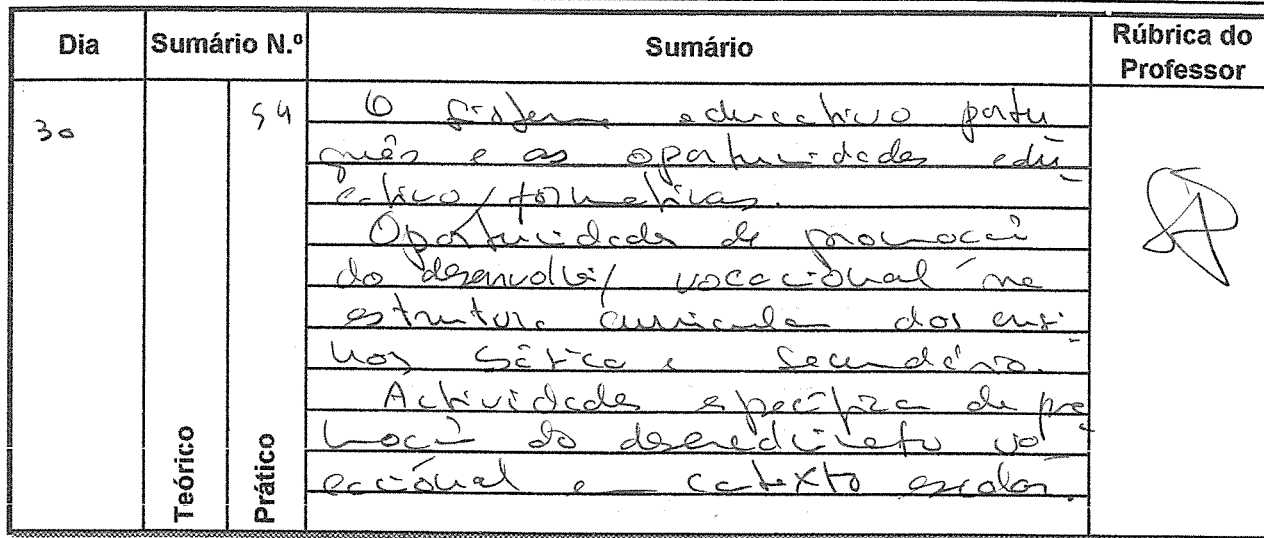 Dia Sumário N.º Sumário Rúbrica do Professor
30 54 O sistema educativo portu
guês e as oportunidades edu
cativo/formativas.
Oportunidades de promoção
do desenvolvi/ vocacional na
estrutura curricular dos ensi-
nos básico e secundário.
Actividades específicas de pro
moção do desenvolvimento vo
cacional em contexto escolar.
Teórico Prático